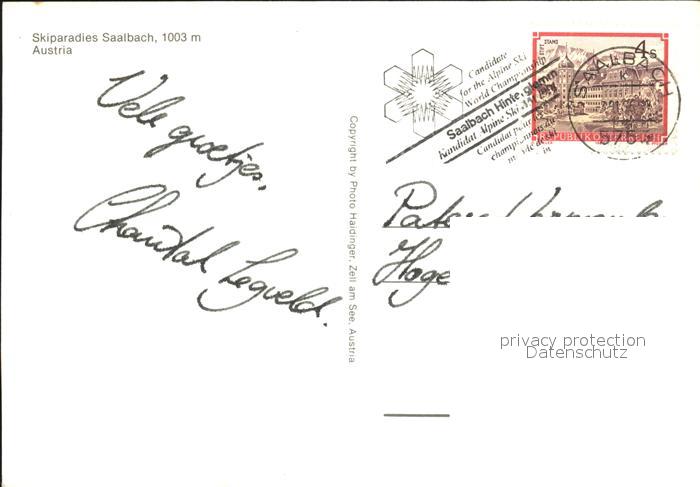 Skiparadies Saalbach, 1003 m
Austria
Vele groetjes,
Chantal
Copyright by Photo Haidinger, Zell am See, Austria
Candidate
for the Alpine Ski
World Championship
Saalbach Hinterglemm
Kandidat Alpine Ski
STAMS
4 S
REPUBLIK ÖSTERREICH
SAALBACH
Hoge
privacy protection
Datenschutz